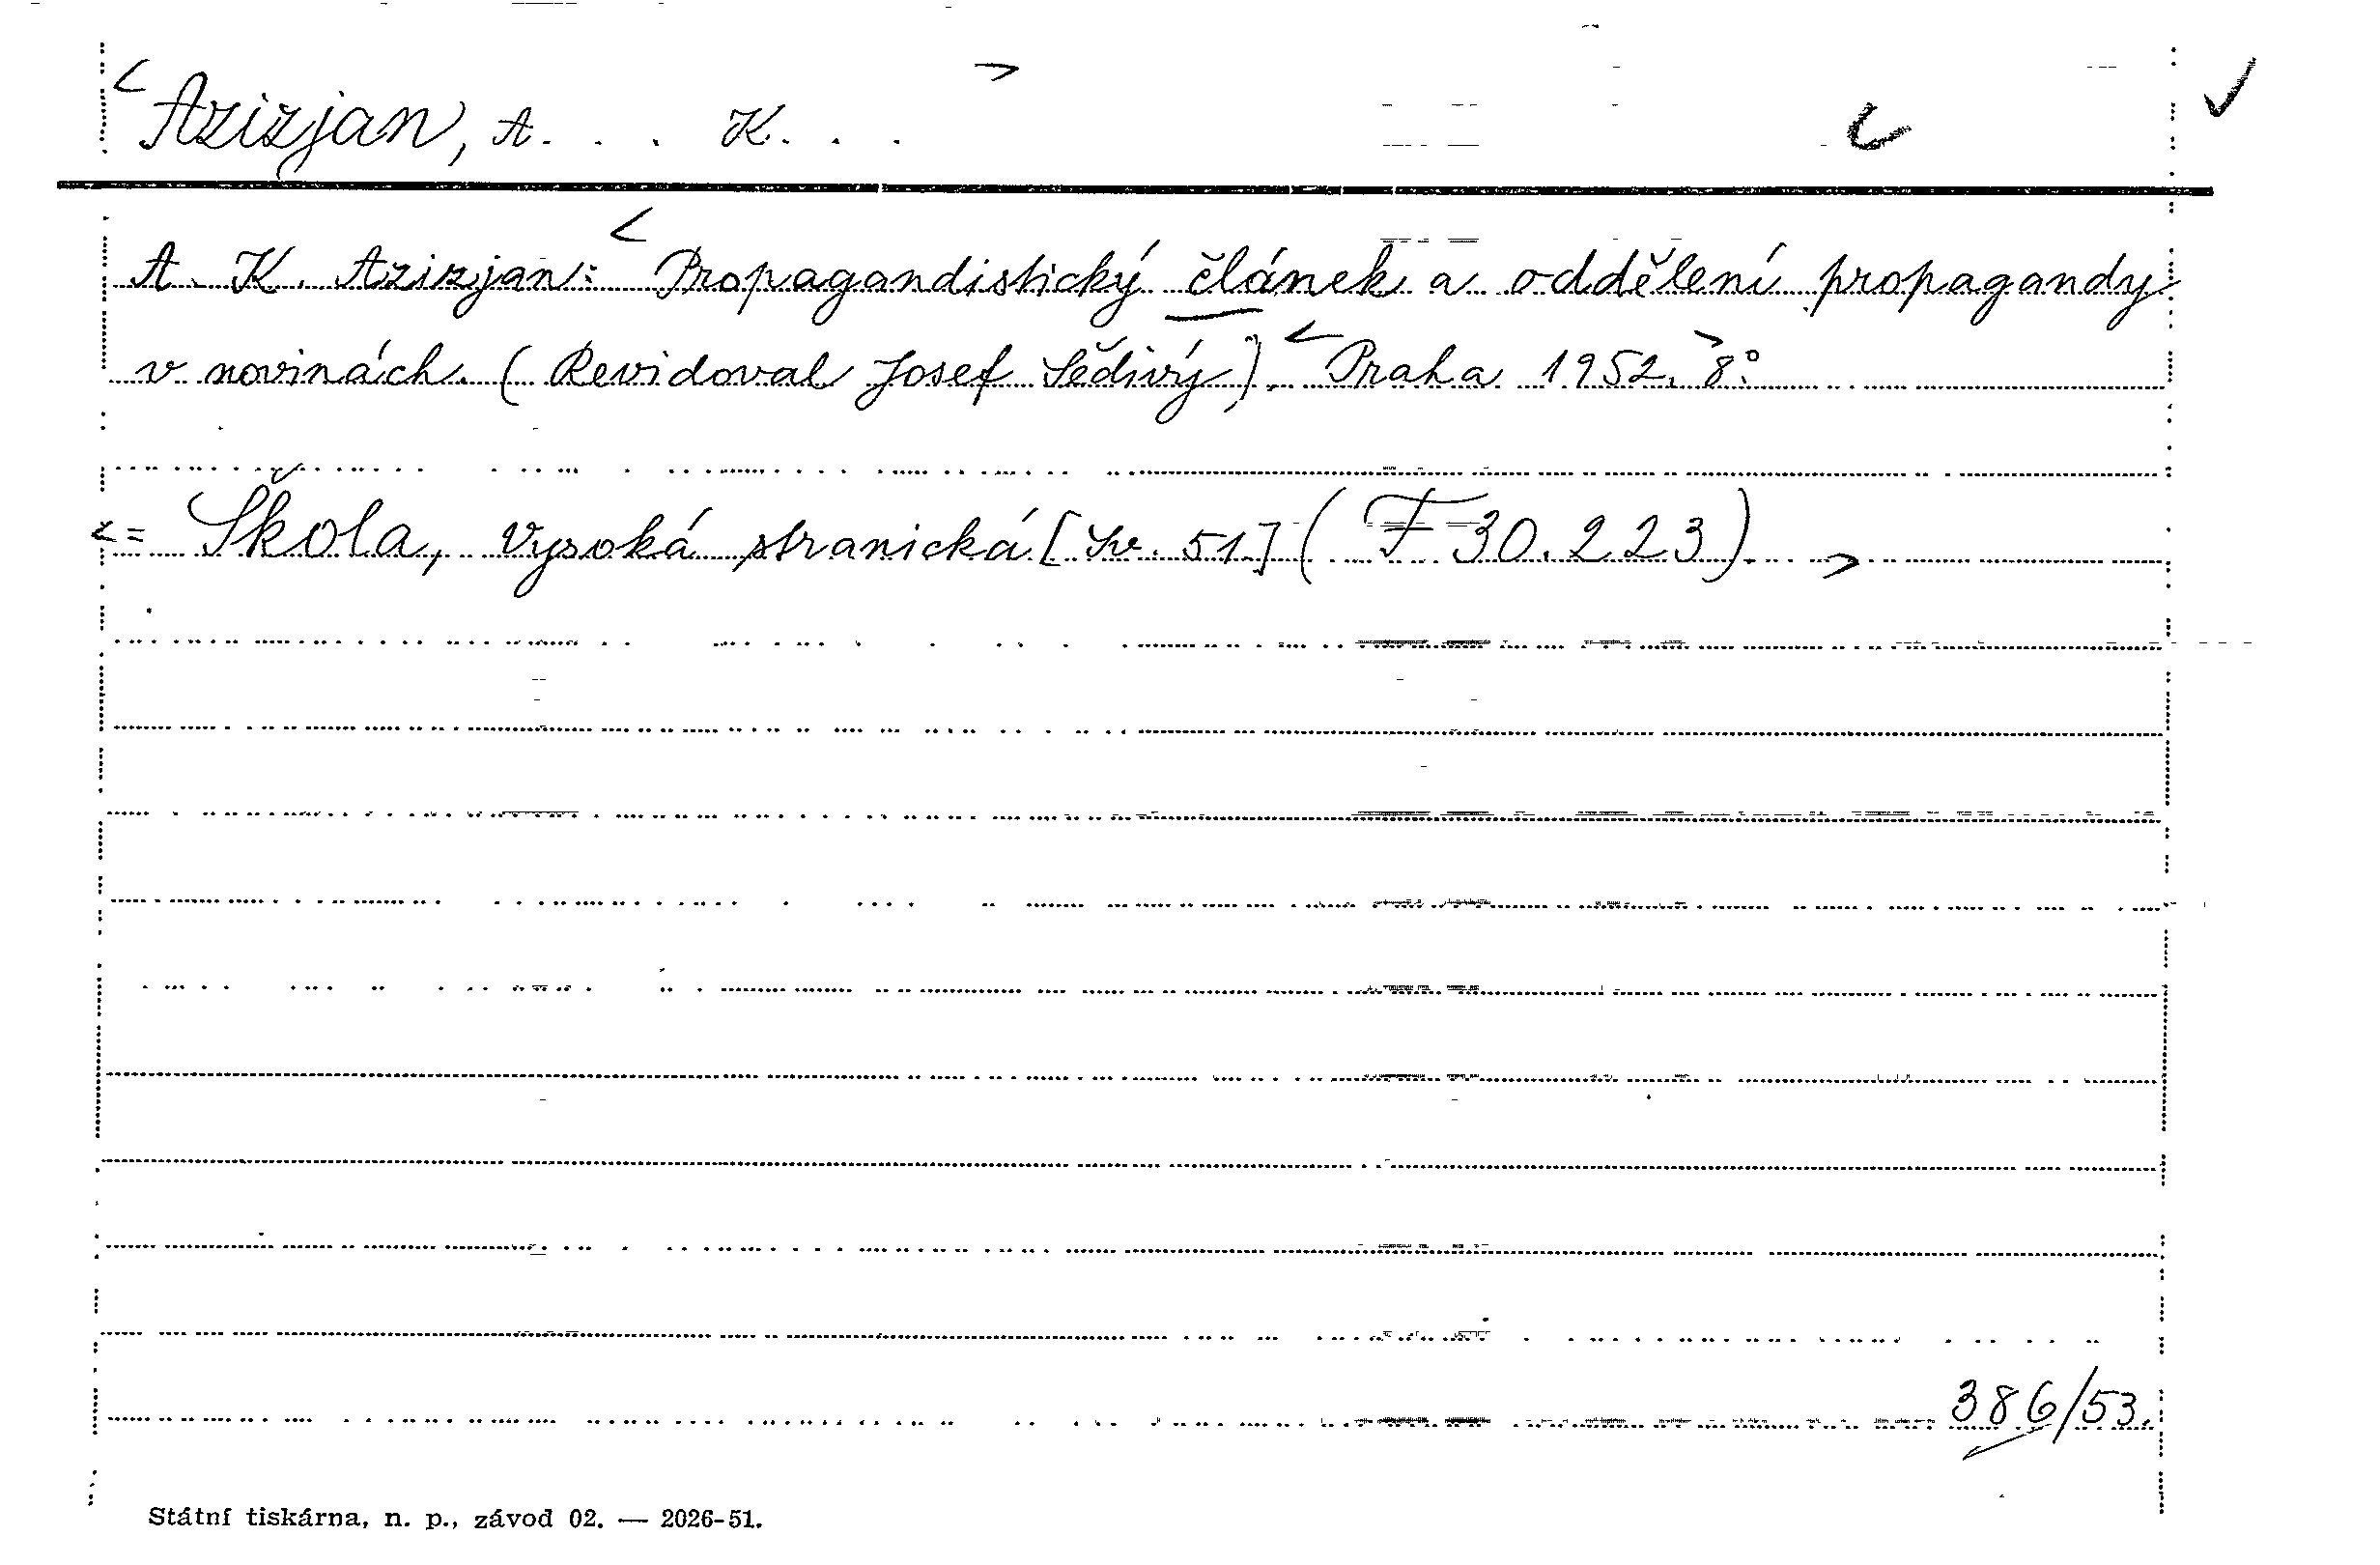 Azizjan, A. . . K. . .
A. K. Azizjan: Propagandistický článek a oddělení propagandy
v novinách. (Revidoval Josef Šedivý). Praha 1952. 8°.
= Škola, Vysoká stranická [Sv. 51] (F 30.223).
386/53.
Státní tiskárna, n. p., závod 02. — 2026-51.